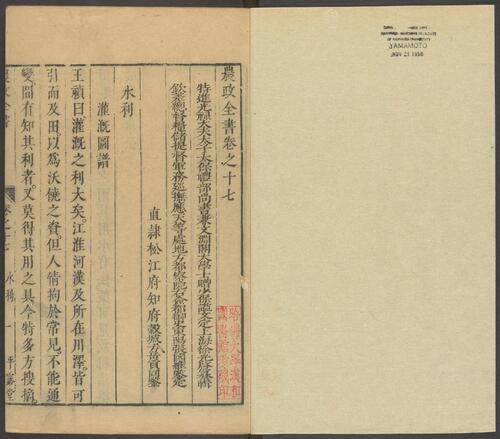 農政全書卷之十七
特進光祿大夫太子太保禮部尚書兼文淵閣大學士贈少保諡文定上海徐光啓纂輯
欽差總督糧儲提督軍務巡撫應天等處地方都察院右僉都御史東陽張國維鑒定
直隸松江府知府穀城方岳貢同鑒
水利
灌漑圖譜
王禎曰灌漑之利大矣江淮河漢及所在川澤皆可
引而及田以爲沃饒之資但人情拘於常見不能通
變間有知其利者又莫得其用之具今特多方搜摘
農政全書
卷之十七
水利
一
平露堂
YAMAMOTO
哈佛大學漢和
圖書館珍藏印